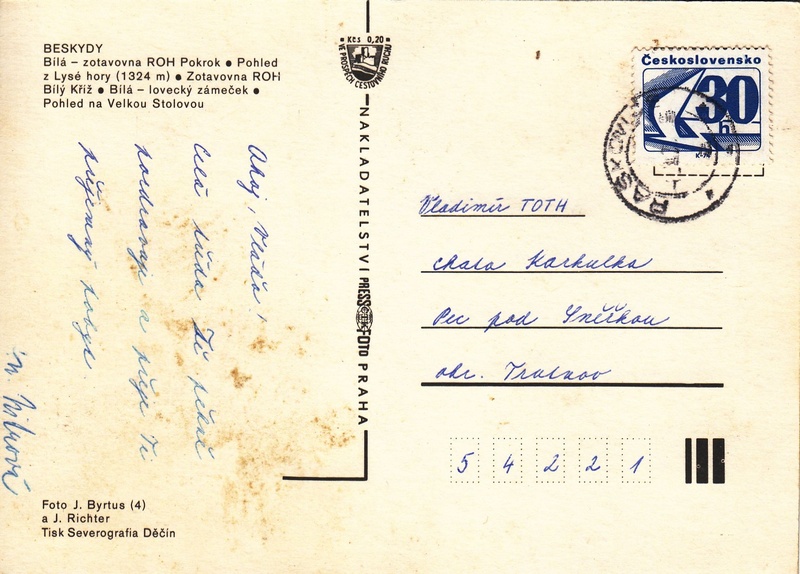 BESKYDY
Bílá – zotavovna ROH Pokrok ● Pohled
z Lysé hory (1324 m) ● Zotavovna ROH
Bílý Kříž ● Bílá – lovecký zámeček ●
Pohled na Velkou Stolovou
Ahoj, Vláďa!
Celá třída Tě
pozdravuje a přeje Ti
příjemný pobyt
Foto J. Byrtus (4)
a J. Richter
Tisk Severografia Děčín
Kčs 0,20
VE PROSPĚCH CESTOVNÍHO RUCHU
NAKLADATELSTVÍ PRESSFOTO PRAHA
Československo
30
h
RAŠKOVICE
Vladimír TOTH
chata Karkulka
Pec pod Sněžkou
okr. Trutnov
54221